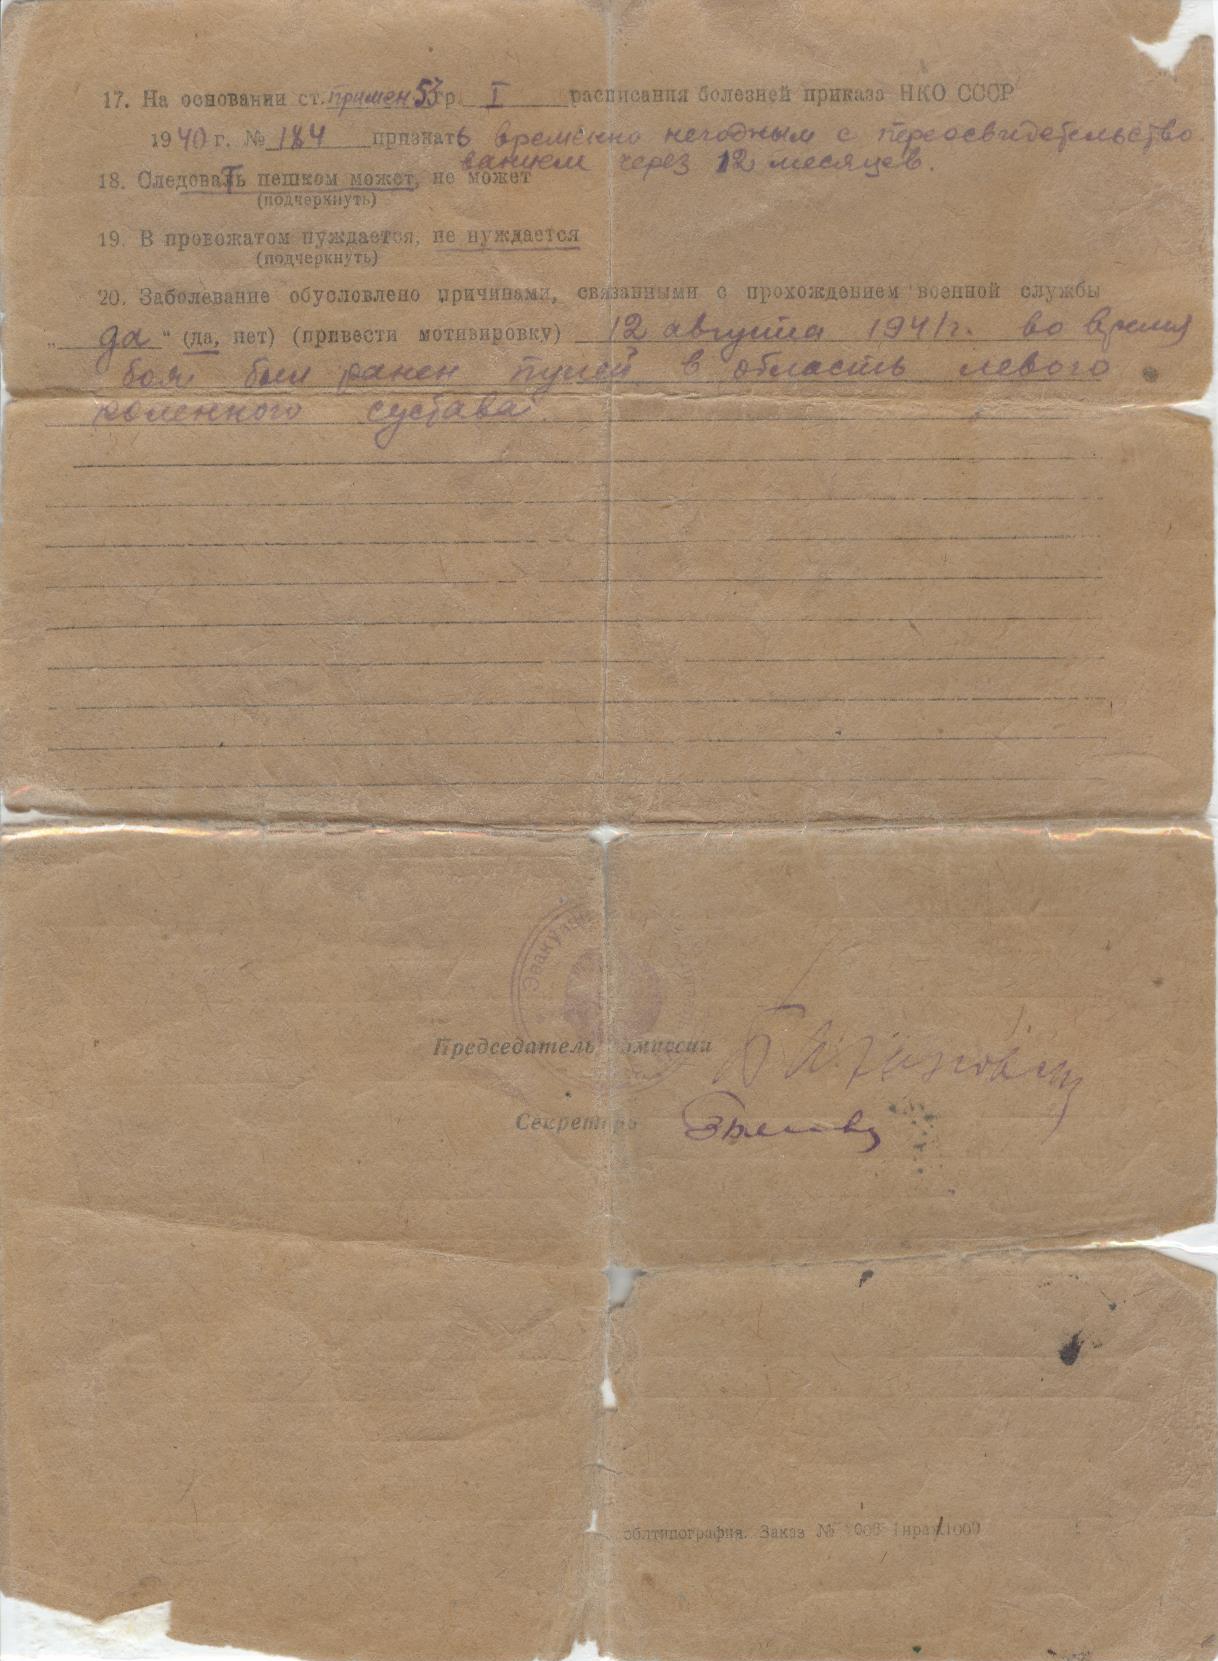 17. На основании ст. примен 53 гр. I расписания болезней приказа НКО СССР
1940 г. № 184 признать временно негодным с переосвидетельство
ванием через 12 месяцев.
18. Следовать пешком может, не может
(подчеркнуть)
19. В провожатом нуждается, не нуждается
(подчеркнуть)
20. Заболевание обусловлено причинами, связанными с прохождением военной службы
„ да " (да, нет) (привести мотивировку) 12 августа 1941 г. во время
боя был ранен пулей в область левого
коленного сустава.
Председатель комиссии
Секретарь
облтипография. Заказ №